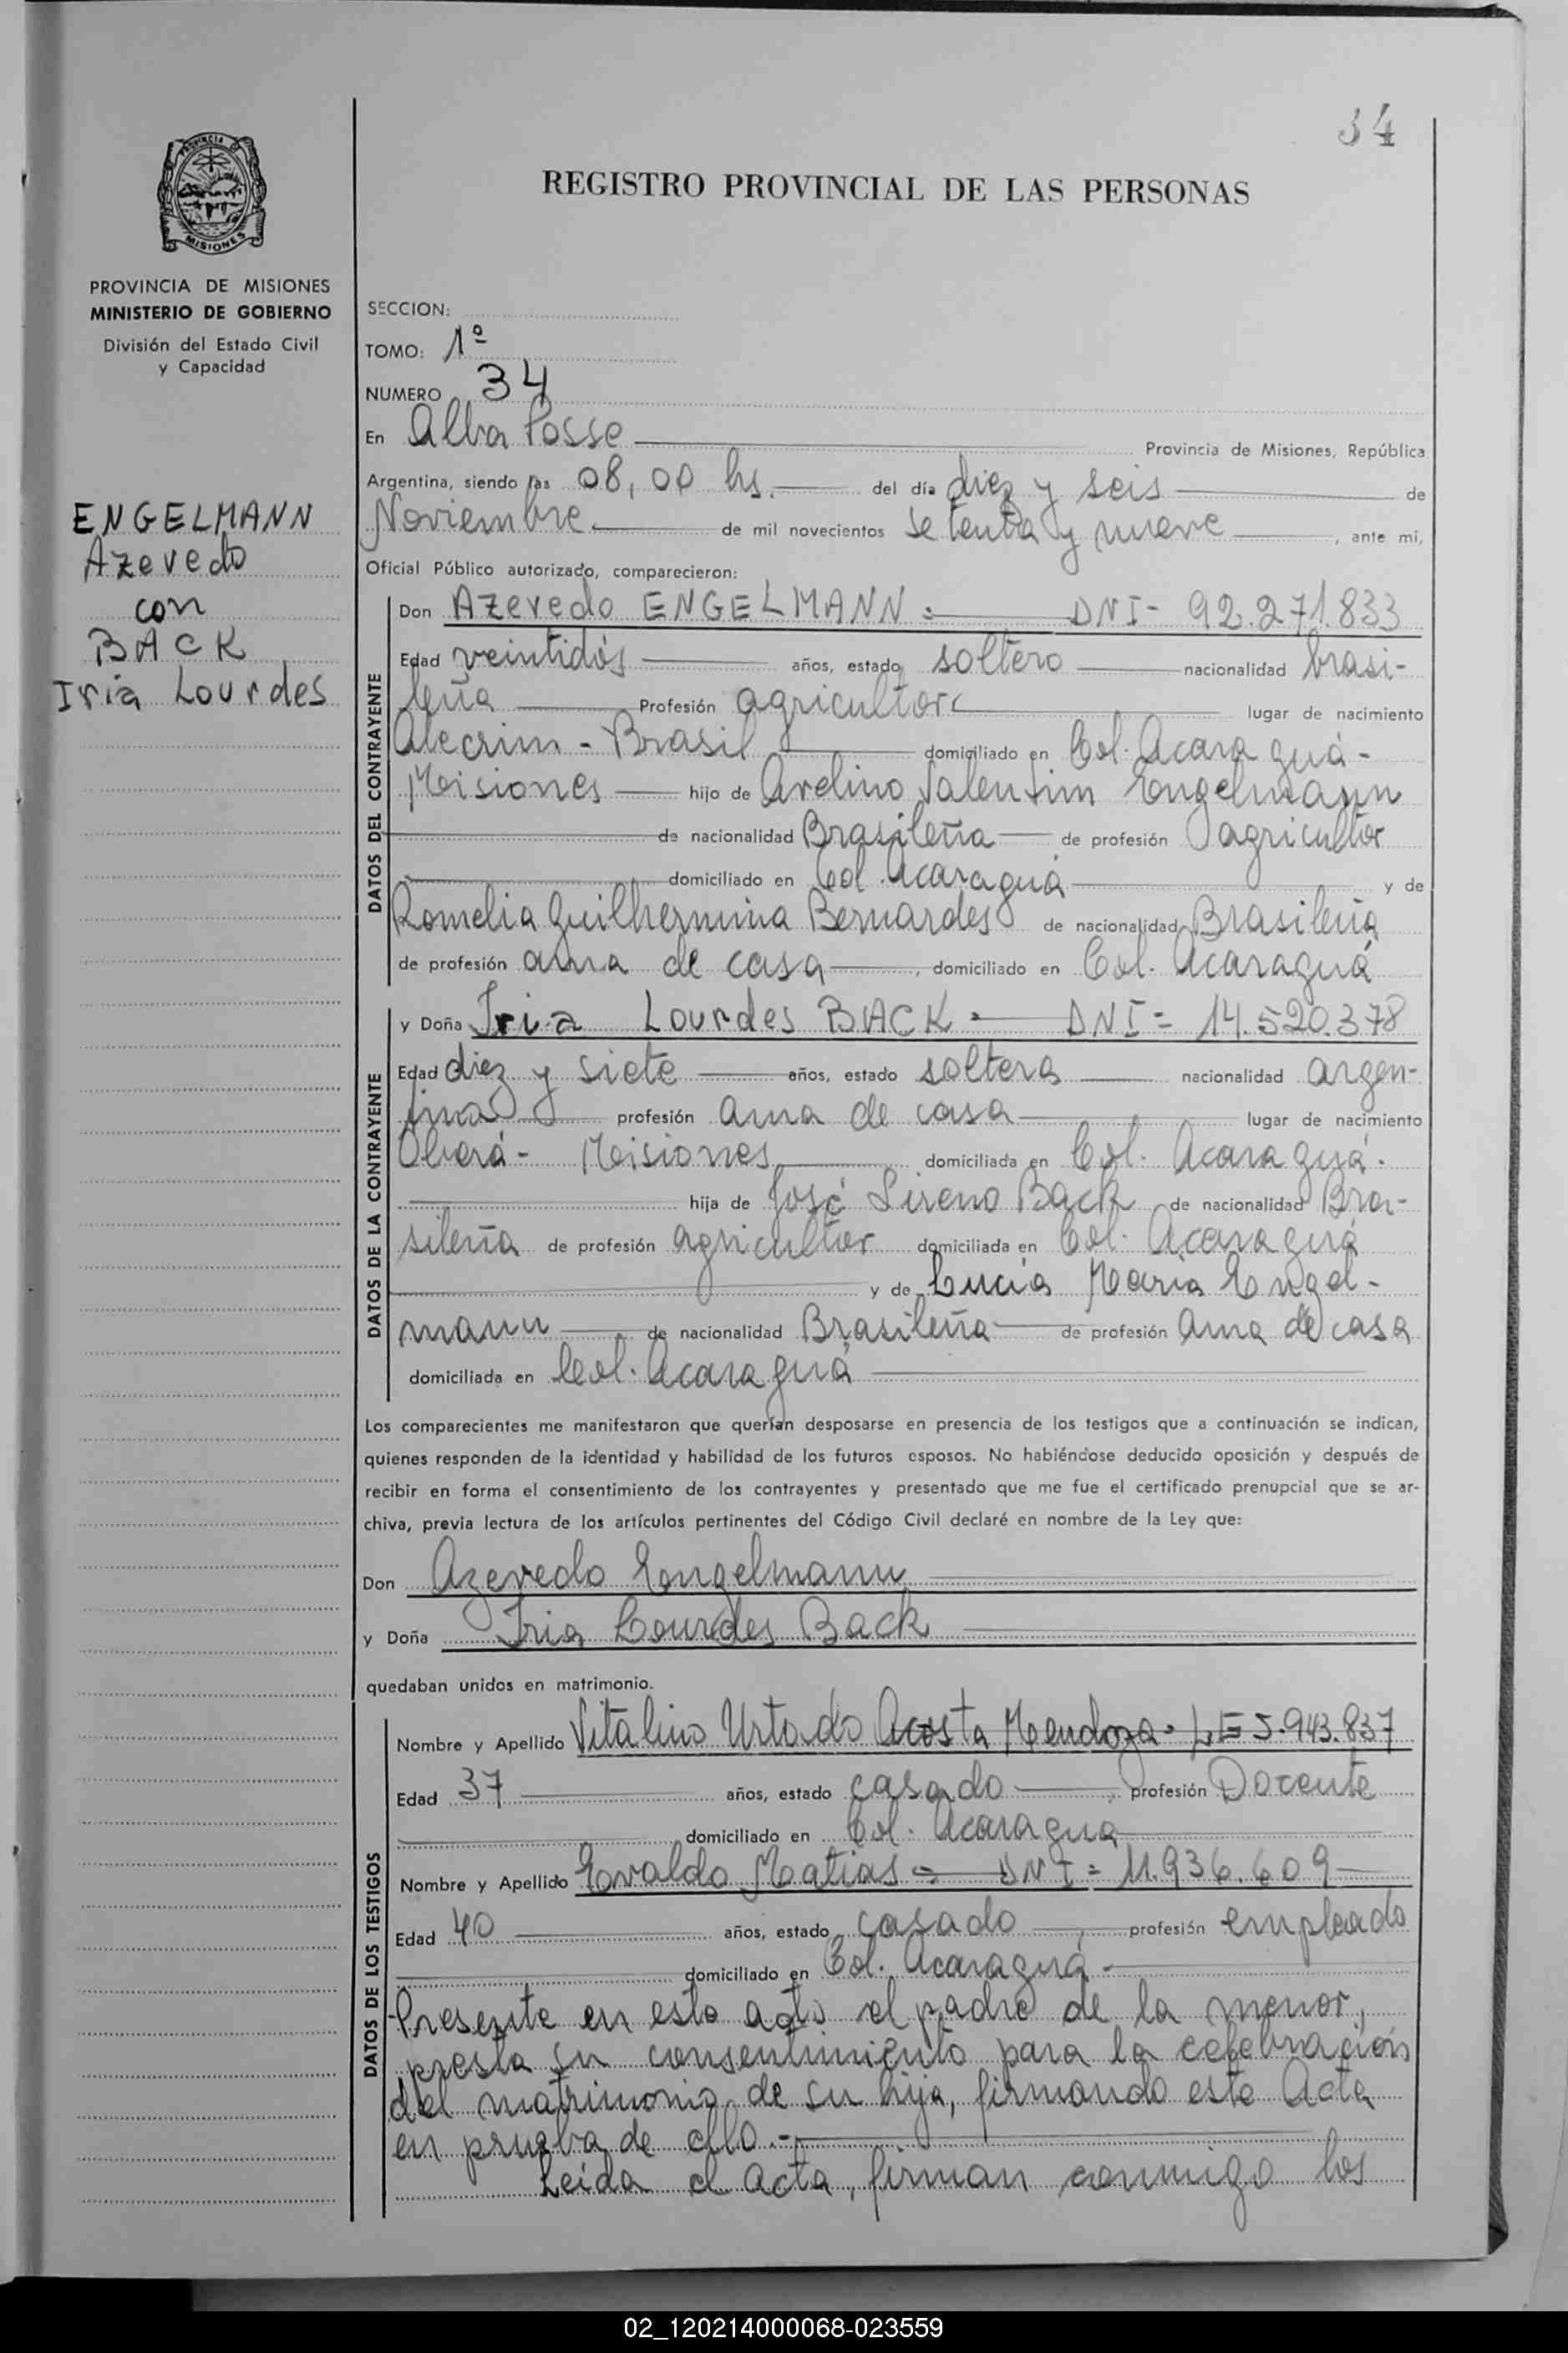 34
REGISTRO PROVINCIAL DE LAS PERSONAS
PROVINCIA DE MISIONES
PROVINCIA DE MISIONES
MINISTERIO DE GOBIERNO
División del Estado Civil
y Capacidad
ENGELMANN
Azevedo
con
BACK
Iria Lourdes
SECCION:
TOMO: 1º
NUMERO 34
En Alba Posse Provincia de Misiones, República
Argentina, siendo las 08,00 hs. del día diez y seis de
Noviembre de mil novecientos setenta y nueve, ante mi,
Oficial Público autorizado, comparecieron:
DATOS DEL CONTRAYENTE
Don Azevedo ENGELMANN = DNI- 92.271.833
Edad veintidós años, estado soltero nacionalidad brasi-
leña Profesión agricultor lugar de nacimiento
Alecrim - Brasil domiciliado en Col. Acaraguá -
Misiones hijo de Avelino Valentim Engelmann
de nacionalidad Brasileña de profesión agricultor
domiciliado en Col. Acaraguá y de
Romelia Guilhermina Bernardes de nacionalidad Brasileña
de profesión ama de casa, domiciliado en Col. Acaraguá
DATOS DE LA CONTRAYENTE
y Doña Iria Lourdes BACK = DNI = 14.520.378
Edad diez y siete años, estado soltera nacionalidad argen-
tina profesión ama de casa lugar de nacimiento
Oberá - Misiones domiciliada en Col. Acaraguá.
hija de José Sireno Back de nacionalidad Bra-
sileña de profesión agricultor domiciliada en Col. Acaraguá
y de Lucía María Engel-
mann de nacionalidad Brasileña de profesión Ama de casa
domiciliada en Col. Acaraguá
Los comparecientes me manifestaron que querían desposarse en presencia de los testigos que a continuación se indican,
quienes responden de la identidad y habilidad de los futuros esposos. No habiéndose deducido oposición y después de
recibir en forma el consentimiento de los contrayentes y presentado que me fue el certificado prenupcial que se ar-
chiva, previa lectura de los artículos pertinentes del Código Civil declaré en nombre de la Ley que:
Don Azevedo Engelmann
y Doña Iria Lourdes Back
quedaban unidos en matrimonio.
DATOS DE LOS TESTIGOS
Nombre y Apellido Vitalino Urtado Acosta Mendoza = LE 5.943.837
Edad 37 años, estado casado, profesión Docente
domiciliado en Col. Acaraguá
Nombre y Apellido Evaldo Matias = DNI = 11.936.609
Edad 40 años, estado casado, profesión empleado
domiciliado en Col. Acaraguá -
Presente en este acto el padre de la menor,
presta su consentimiento para la celebración
del matrimonio de su hija, firmando este Acta
en prueba de ello.-
Leída el Acta, firman conmigo los
02_120214000068-023559